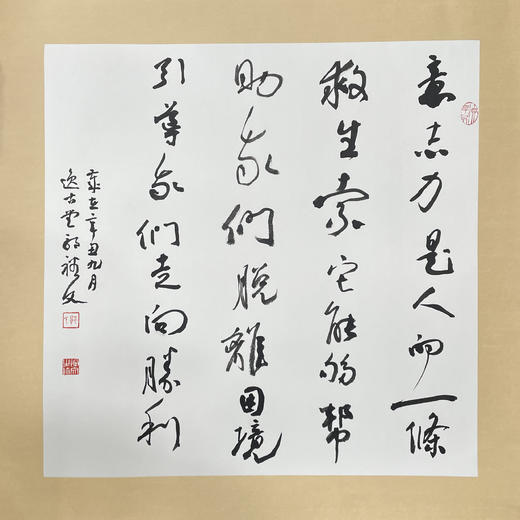 意志力是人的一條
救生索它能夠幫
助我們脫離困境
引導我們走向勝利
歲在辛丑九月
逸古堂